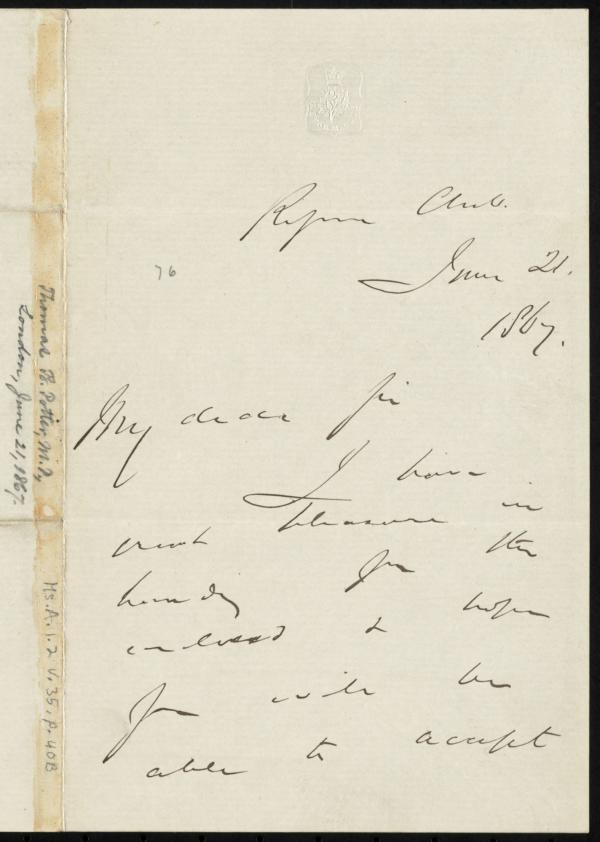 Reform Club.
June 21.
1867.
76
My dear Sir
I have
great pleasure in
handing you the
enclosed & hope
you will be
able to accept
Thomas B. Potter, M.P.
London, June 21, 1867.
Ms.A.1.2 v.35, p.40B